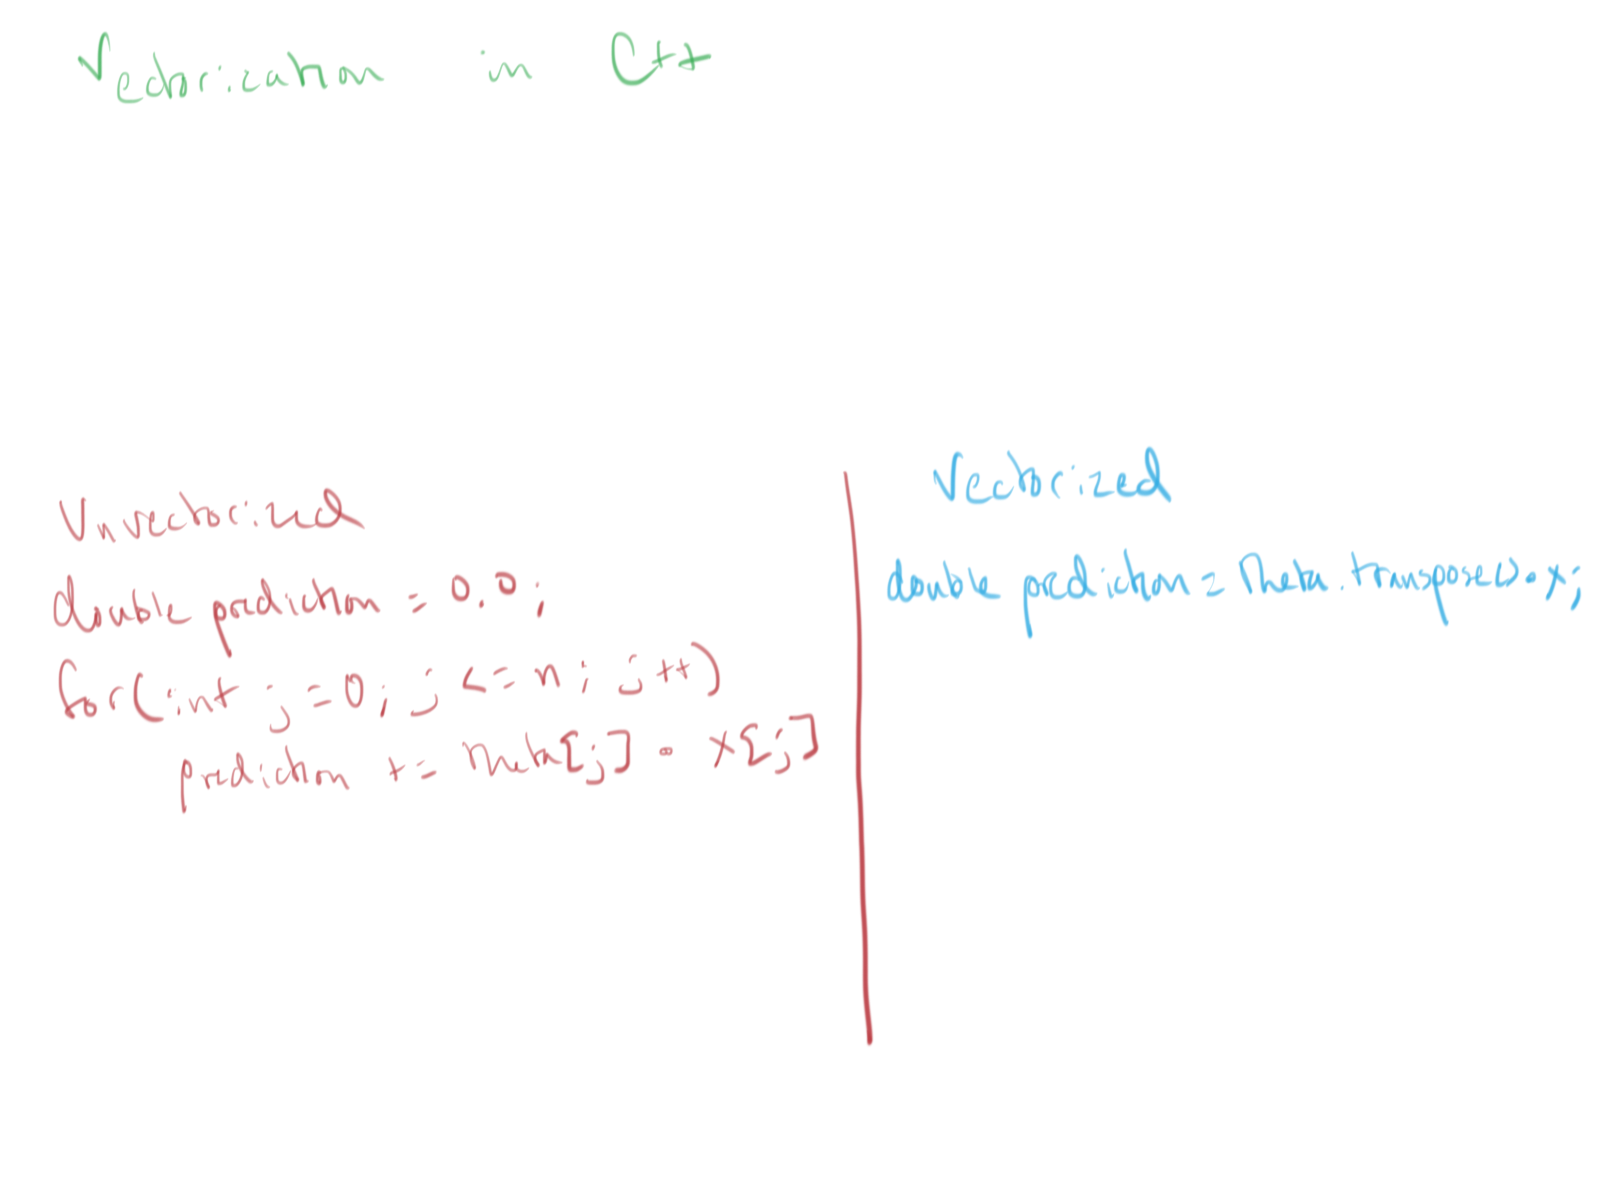 Vectorization in C++
Unvectorized
double prediction = 0.0;
for(int j=0; j <= n; j++)
prediction += theta[j] * x[j]
Vectorized
double prediction = Theta.transpose() * x;